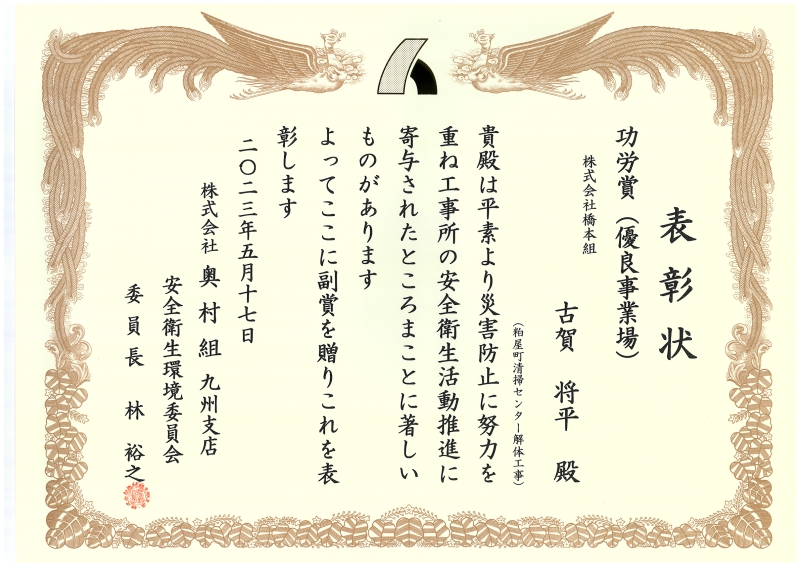 表彰状
功労賞（優良事業場）
株式会社橋本組
古賀 将平 殿
（粕屋町清掃センター解体工事）
貴殿は平素より災害防止に努力を
重ね工事所の安全衛生活動推進に
寄与されたところまことに著しい
ものがあります
よってここに副賞を贈りこれを表
彰します
二〇二三年五月十七日
株式会社 奥村組 九州支店
安全衛生環境委員会
委員長 林 裕之